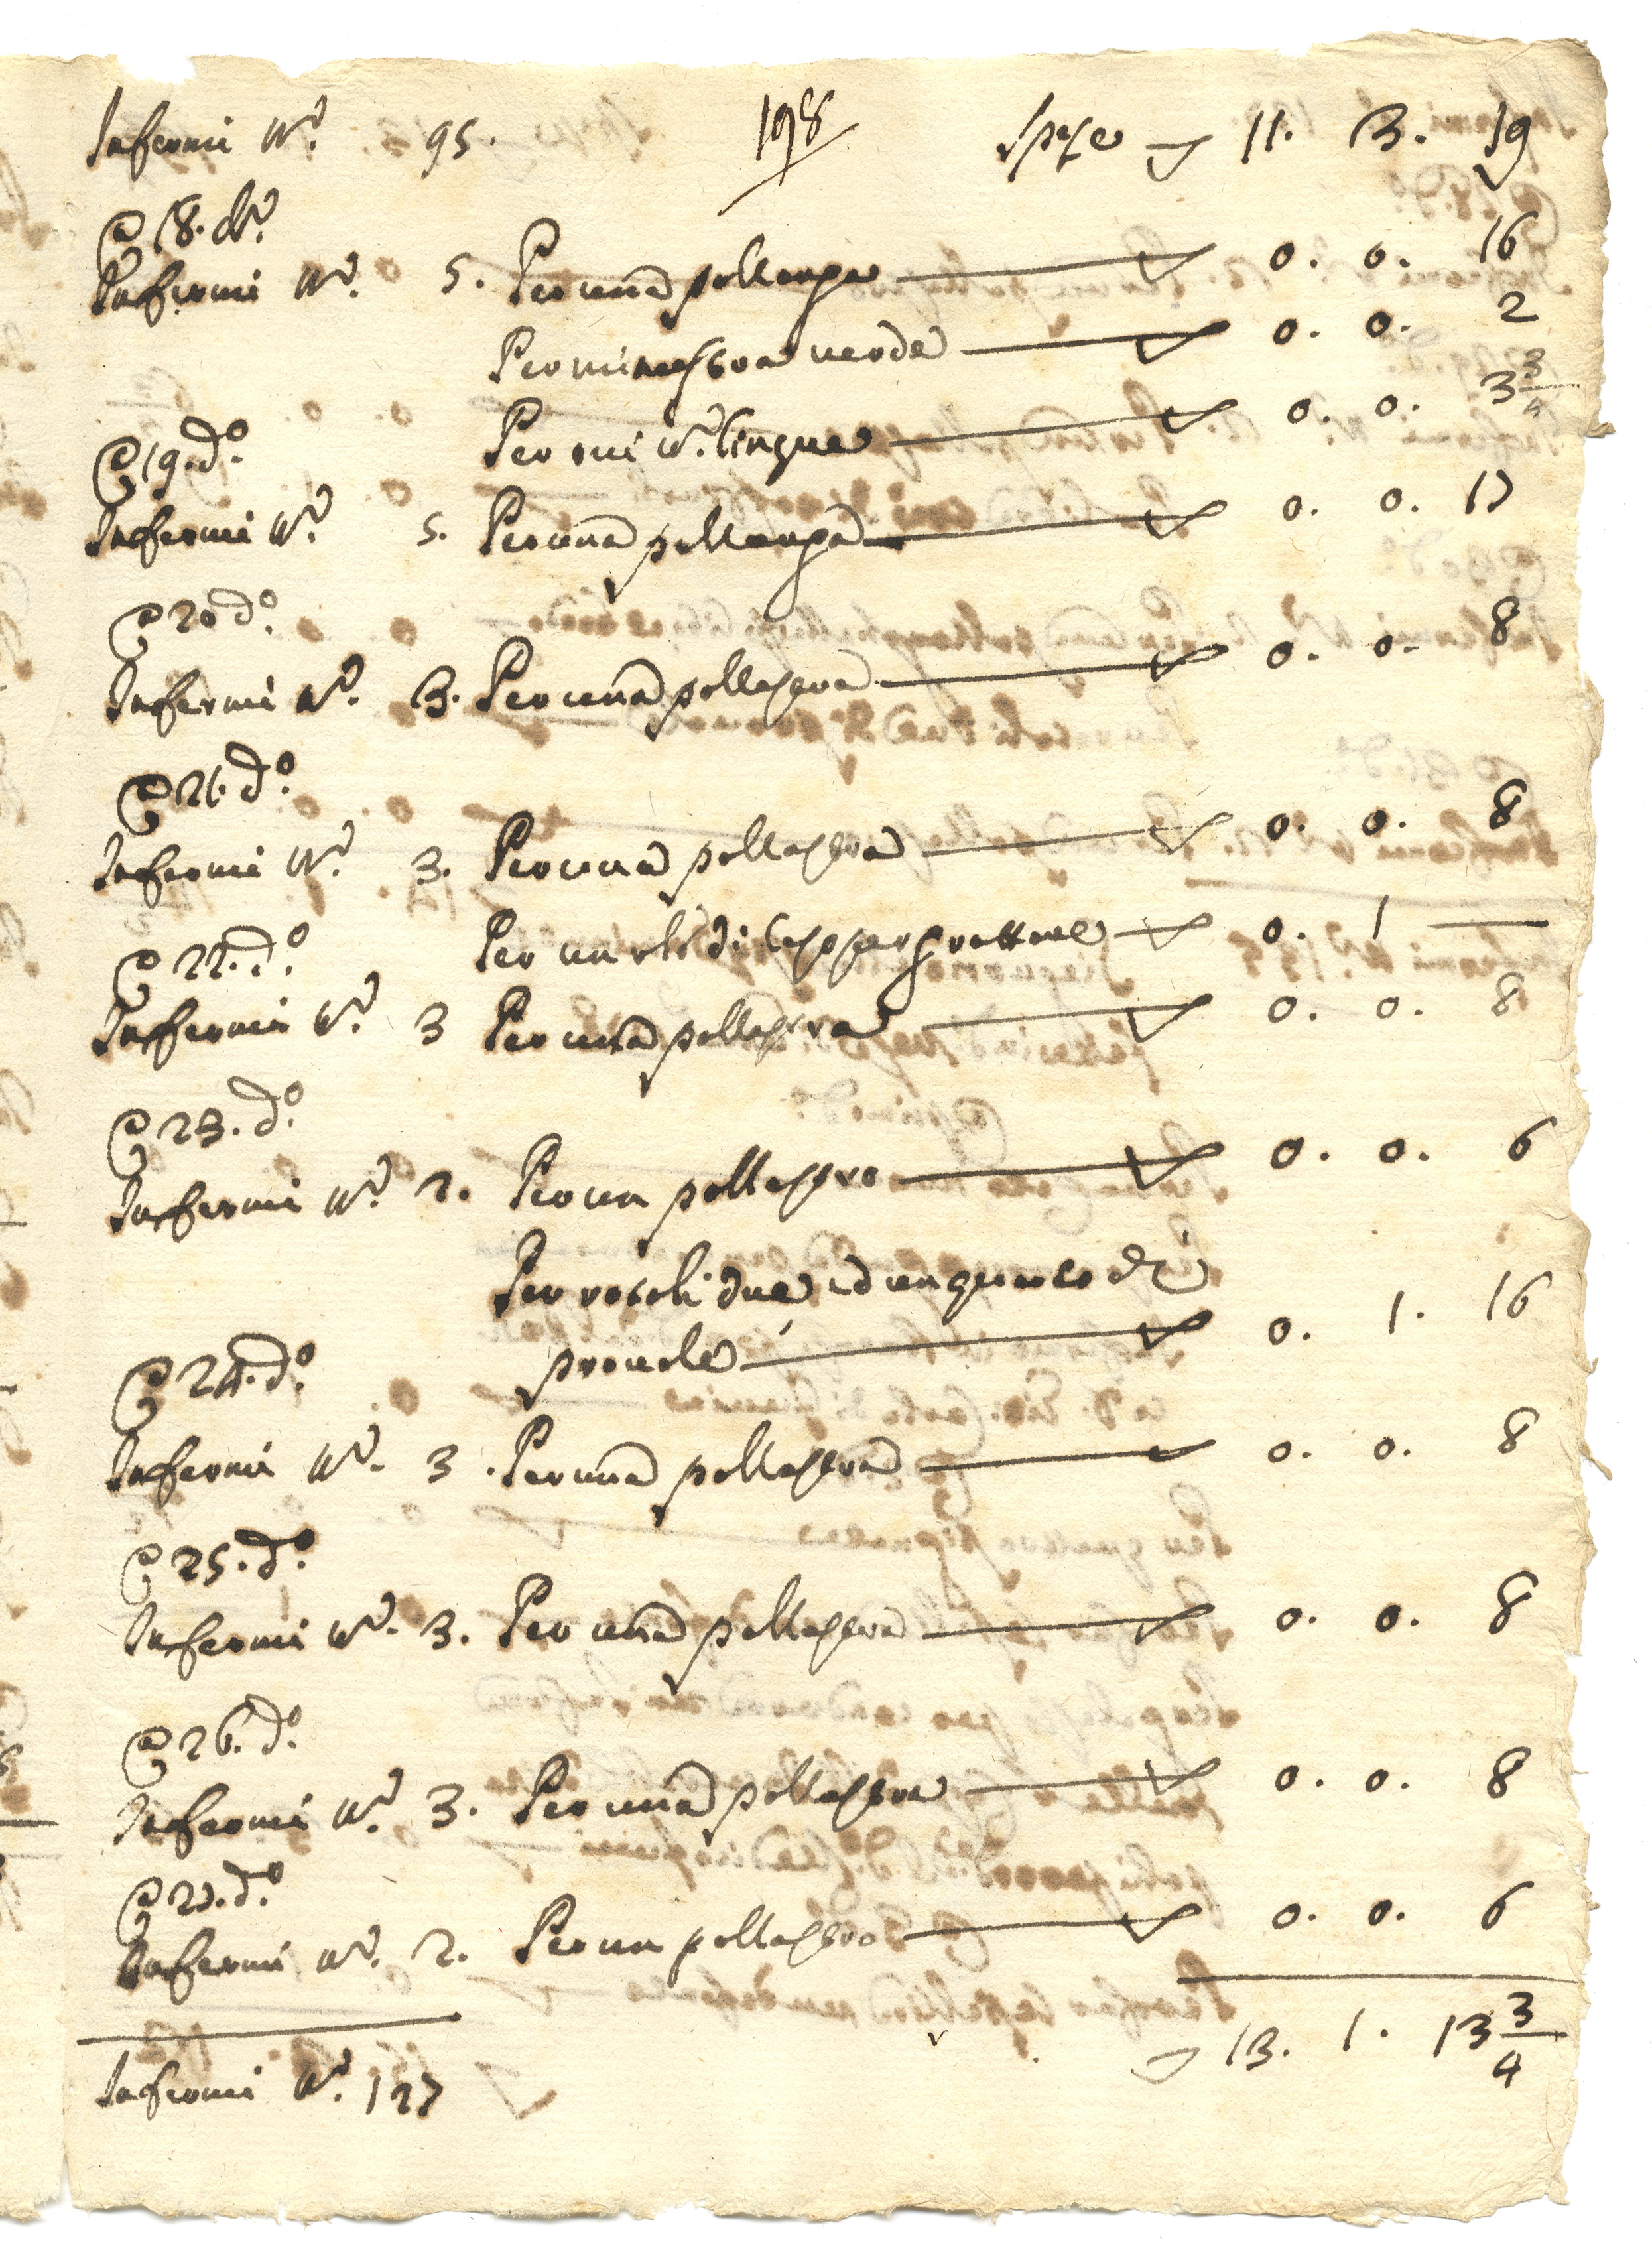 Infermi N.º 95. 198 Spese 11. 3. 19
A 18. d.º
Infermi N.º 5. Per una pollanga 0. 0. 16
Per minestra verde 0. 0. 2
Per oui N.º cinque 0. 0. 3 3/4
A 19. d.º
Infermi N.º 5. Per una pollanga 0. 0. 17
A 20 d.º
Infermi N.º 3. Per una pollastra 0. 0. 8
A 21. d.º
Infermi N.º 3. Per una pollastra 0. 0. 8
Per un rlo di 0. 1 —
A 22. d.º
Infermi N.º 3 Per una pollastra 0. 0. 8
A 23. d.º
Infermi N.º 2. Per un pollastro 0. 0. 6
Per rotoli due ed un quarto di
0. 1. 16
A 24. d.º
Infermi N.º 3. Per una pollastra 0. 0. 8
A 25. d.º
Infermi N.º 3. Per una pollastra 0. 0. 8
A 26. d.º
Infermi N.º 3. Per una pollastra 0. 0. 8
A 27. d.º
Infermi N.º 2. Per un pollastro 0. 0. 6
13. 1. 13 3/4
Infermi N.º 127